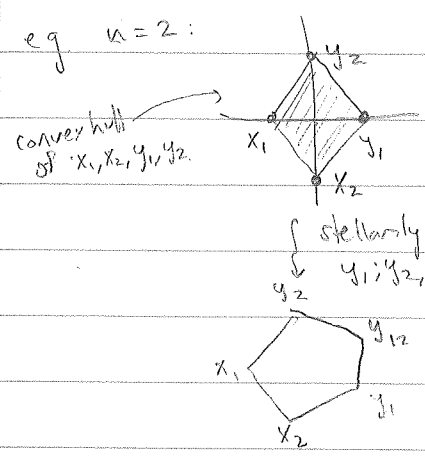 eg n = 2 :
y₂
convex hull
of x₁, x₂, y₁, y₂.
x₁
y₁
x₂
stellarly
y₁; y₂,
y₂
y₁₂
x₁
y₁
x₂